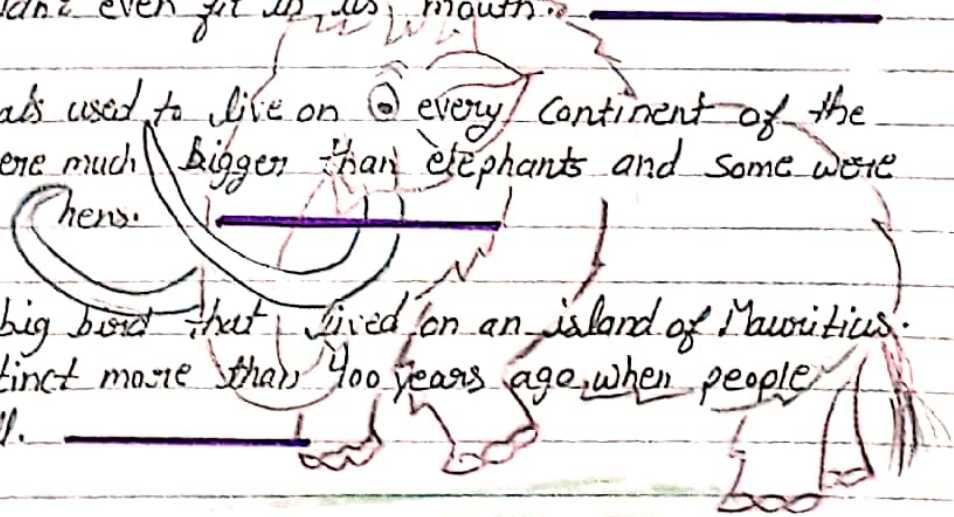 even fit in its mouth.
used to live on every continent of the
much bigger than elephants and some were
hens.
big bird that lived on an island of Mauritius.
more than 400 years ago, when people